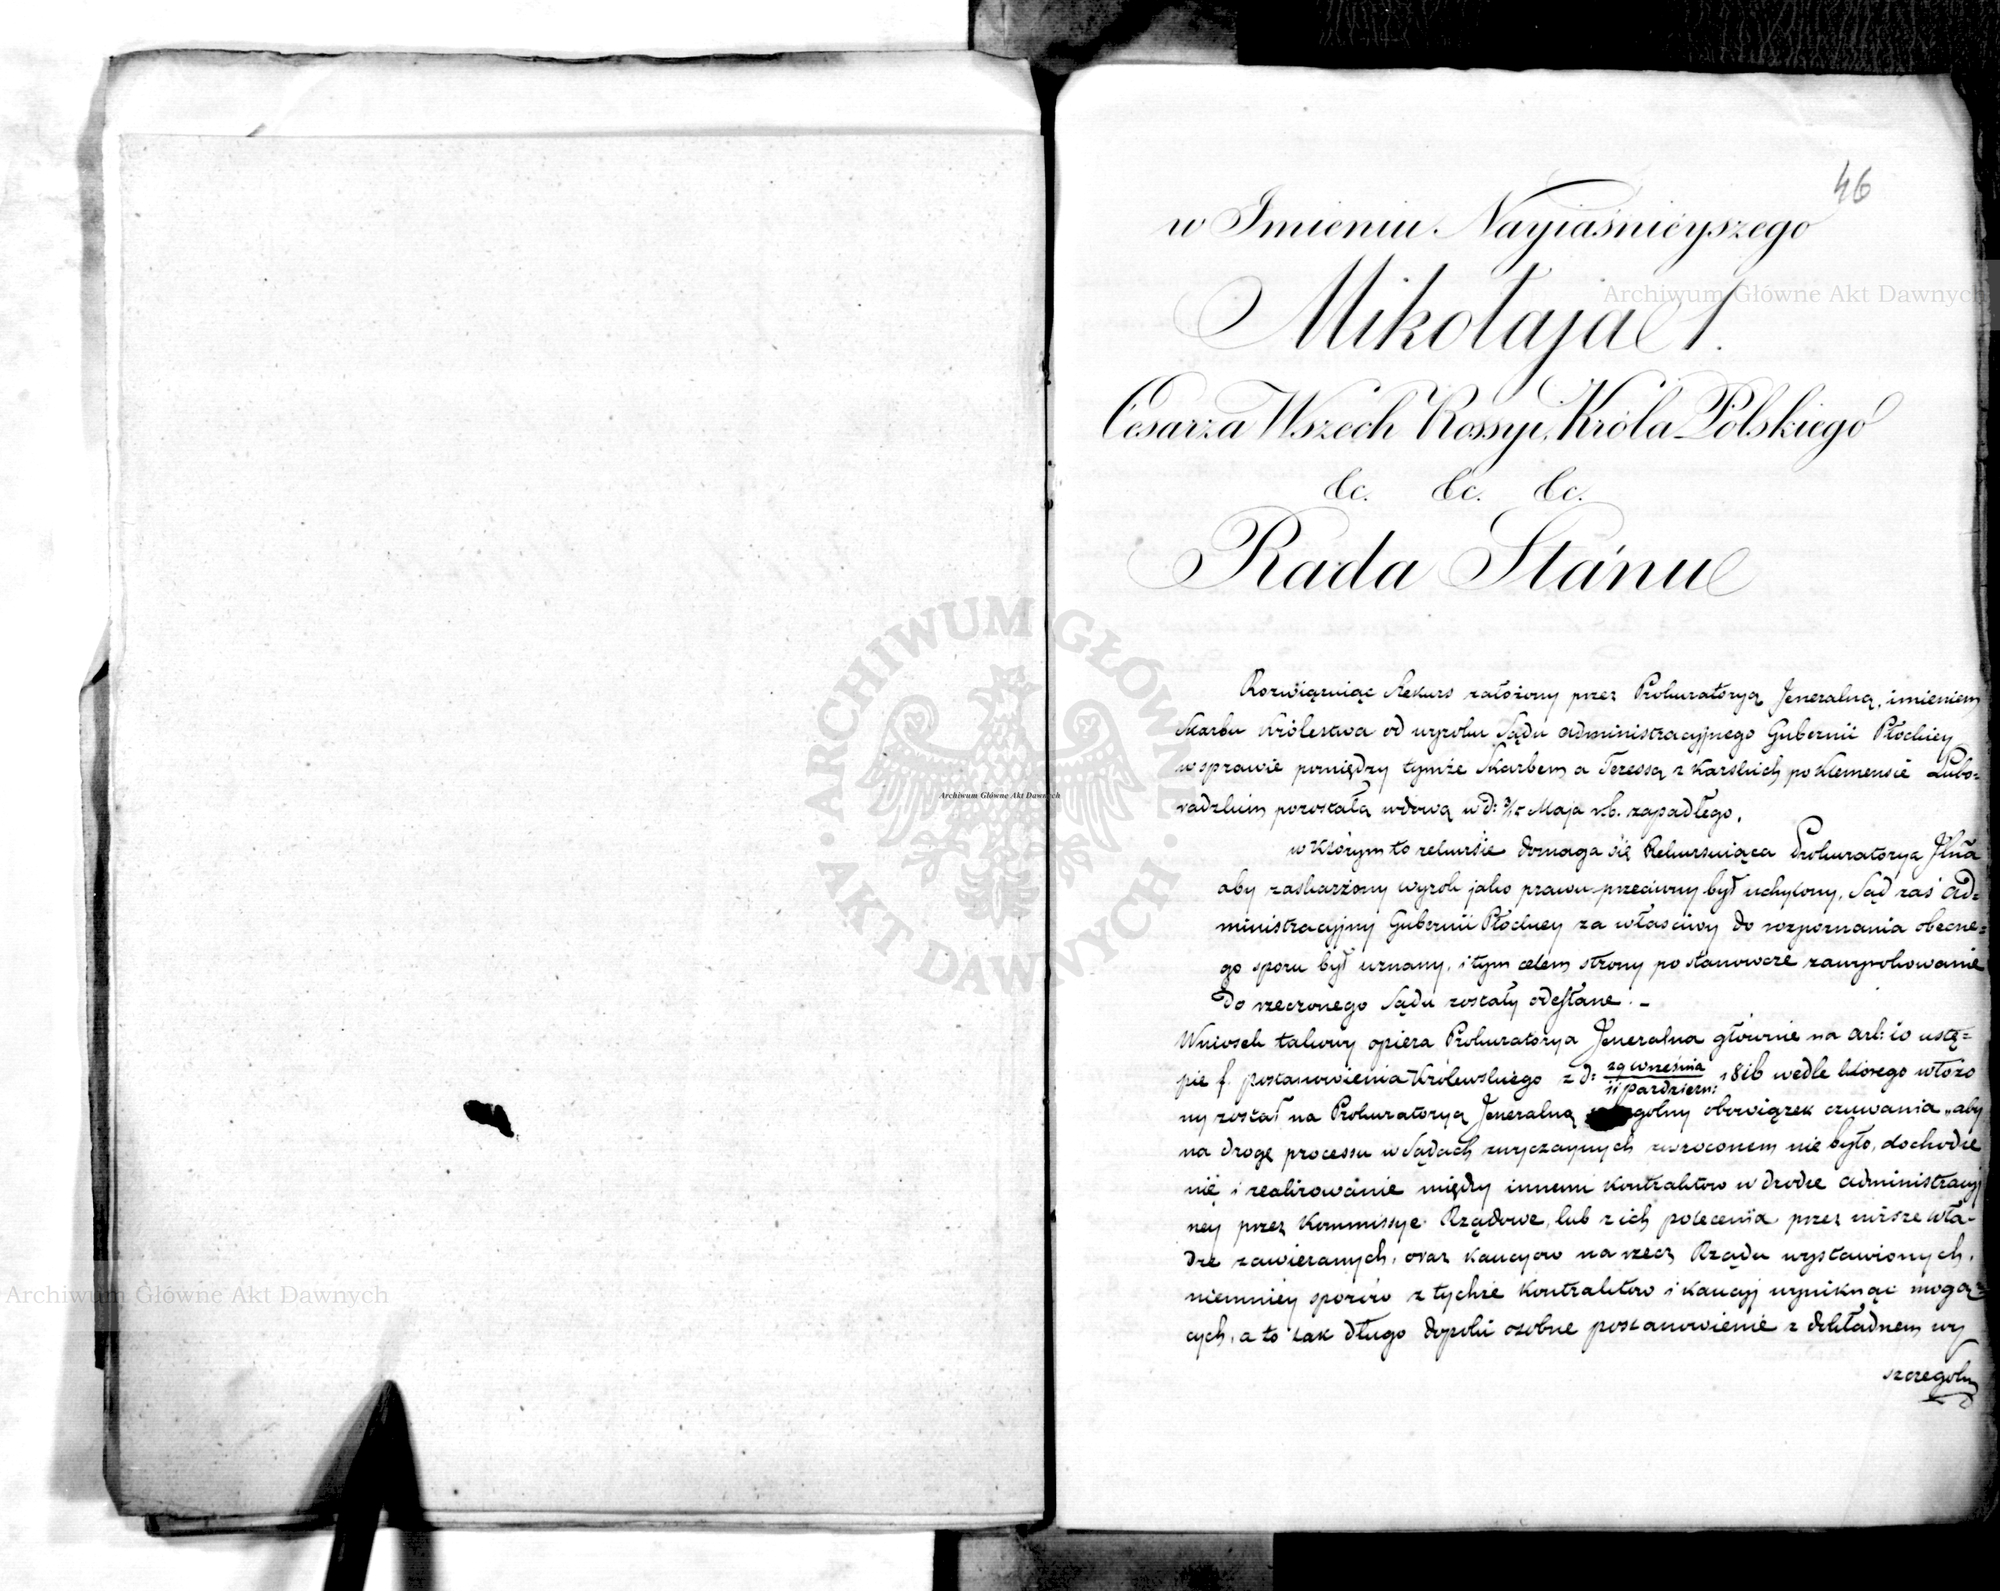 46
w Imieniu Nayiaśnieyszego
Mikołaja I.
Cesarza Wszech Rossyi, Króla Polskiego
&c. &c. &c.
Rada Stanu
Rozwiązuiąc Rekurs założony przez Prokuratoryą Jeneralną, imieniem
Skarbu Królestwa od wyroku Sądu administracyjnego Gubernii Płockiey
w sprawie pomiędzy tymże Skarbem a Teressą z Karskich po Klemensie Lubo-
radzkim pozostałą wdową w d: 3/15 Maja r.b. zapadłego.
w którym to rekursie domaga się Rekursuiąca Prokuratorya Jlna
aby zaskarżony wyrok jako prawu przeciwny był uchylony, Sąd zaś Ad-
ministracyjny Gubernii Płockiey za właściwy do rozpoznania obecne-
go sporu był uznany, i tym celem strony po stanowcze zawyrokowanie
do rzeczonego Sądu zostały odesłane. -
Wniosek takowy opiera Prokuratorya Jeneralna głównie na art: 10 ustę-
pie f. postanowienia Królewskiego z d: 29 września / 11 październ: 1816 wedle którego włożo
ny został na Prokuratoryą Jeneralną obowiązek czuwania "aby
na drogę processu w Sądach zwyczaynych zwroconem nie było, dochodze
nie i realizowanie między innemi kontraktow w drodze administracyj
ney przez Kommissye Rządowe, lub z ich polecenia przez niższe wła-
dze zawieranych, oraz kaucyow na rzecz Rządu wystawionych,
niemniey sporów z tychże kontraktow i kaucyj wyniknąć mogą-
cych, a to tak długo dopoki osobne postanowienie z dokładnem wy
szczegoln
Archiwum Główne Akt Dawnych
Archiwum Główne Akt Dawnych
Archiwum Główne Akt Dawnych
ARCHIWUM GŁÓWNE · AKT DAWNYCH ·